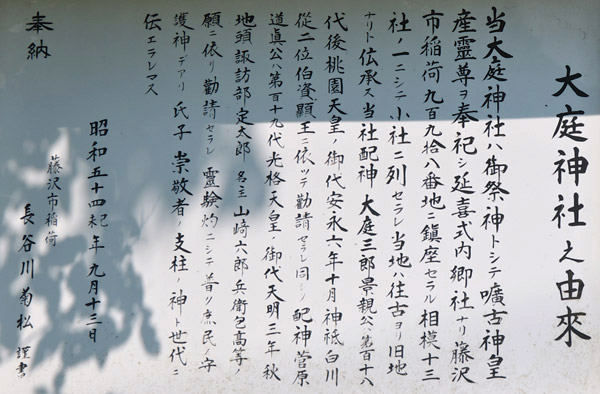 大庭神社之由來
当大庭神社ハ御祭神トシテ嚝古神皇
産靈尊ヲ奉祀シ延喜式内郷社ナリ藤沢
市稲荷九百九拾八番地ニ鎮座セラル相模十三
社ノ一ニシテ小社ニ列セラレ当地ハ往古ヨリ旧地
ナリト伝承ス当社配神大庭三郎景親公ハ第百十八
代後桃園天皇ノ御代安永六年十月神祗白川
從二位伯資顕王ニ依ツテ勧請セラレ同シク配神菅原
道眞公ハ第百十九代光格天皇ノ御代天明三年秋
地頭諏訪部定太郎名主山﨑六郎兵衛包高等ノ
願ニ依リ勧請セラレ靈験灼ニシテ普ク庶民ノ守
護神デアリ氏子崇敬者ノ支柱ノ神ト世代ニ
伝エラレマス
昭和五十四年九月十三日
藤沢市稲荷
奉納 長谷川菊松 謹書